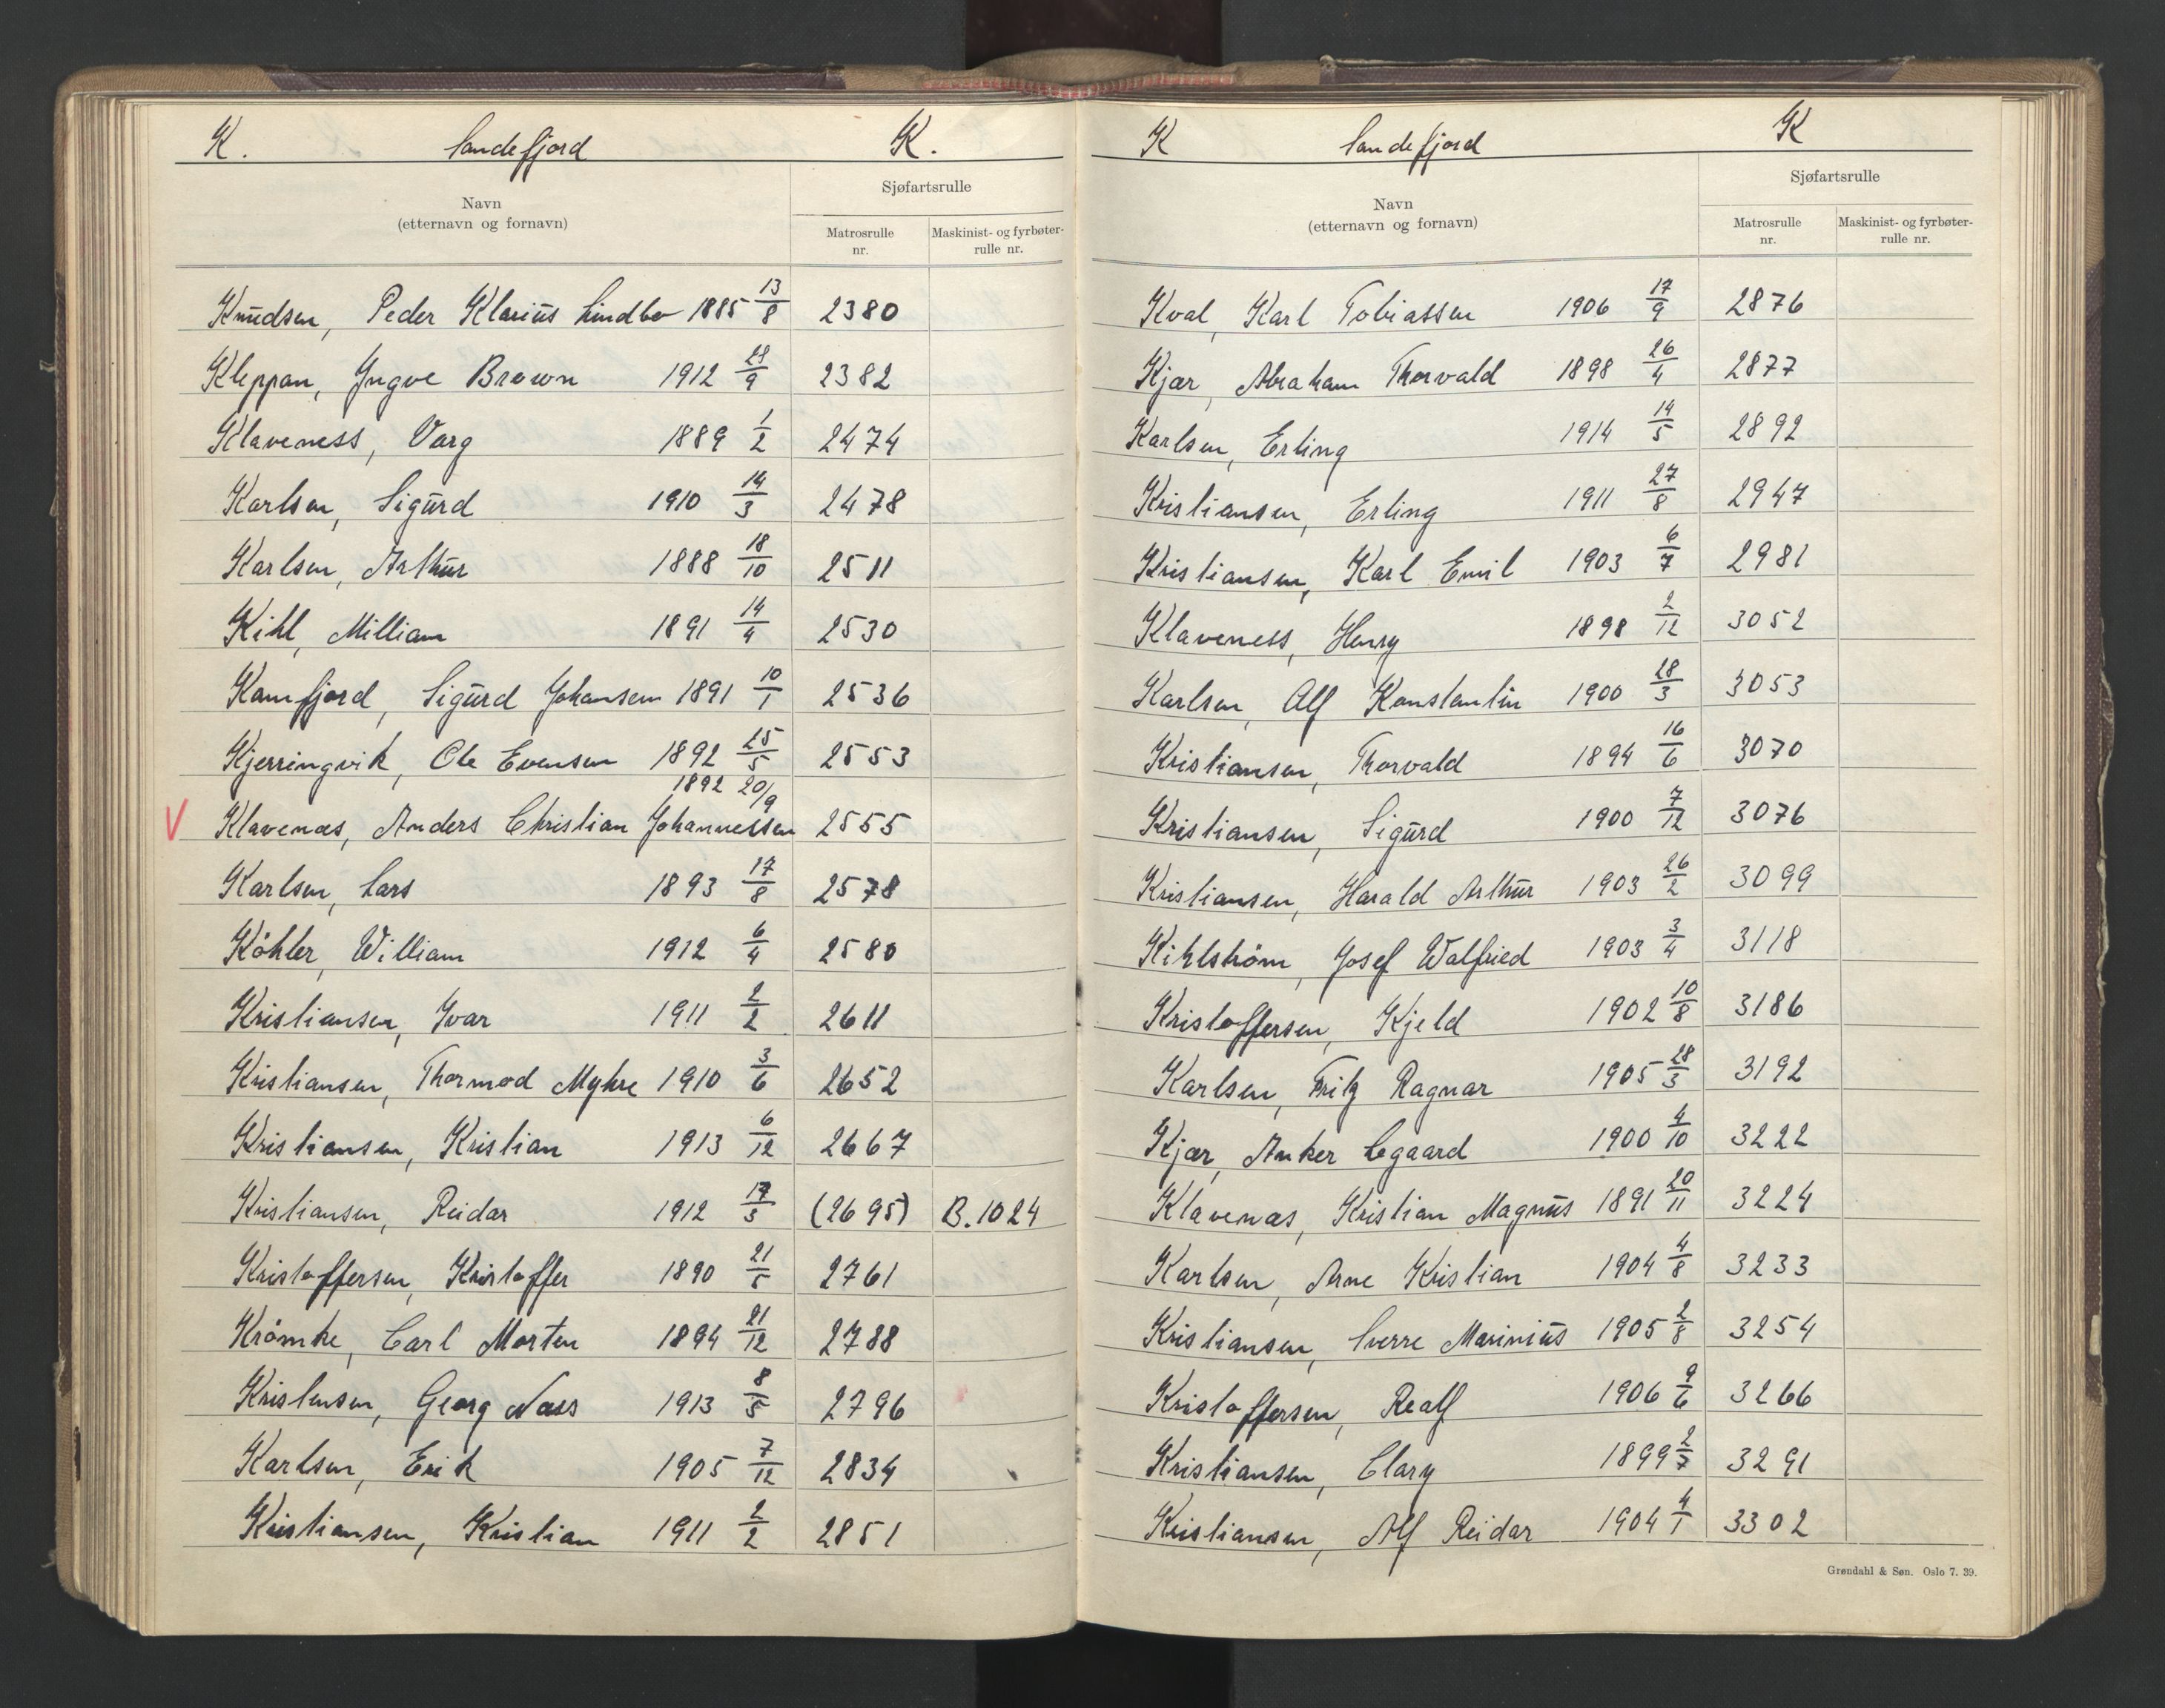 K. Sandefjord K.
Navn
(etternavn og fornavn)
Sjøfartsrulle
Matrosrulle nr.
Maskinist- og fyrbøter-rulle nr.
Knudsen, Peder Klarius Lindbo 1885 13/8 2380
Kleppan, Yngve Brown 1912 29/9 2382
Klaveness, Varg 1889 1/2 2474
Karlsen, Sigurd 1910 14/3 2478
Karlsen, Arthur 1888 18/10 2511
Kihl, Milliam 1891 14/4 2530
Kamfjord, Sigurd Johansen 1891 10/1 2536
Kjerringvik, Ole Evensen 1892 25/5 2553
1892 20/9
V Klavenæs, Anders Christian Johannessen 2555
Karlsen, Lars 1893 17/8 2578
Köhler, William 1912 6/4 2580
Kristiansen, Ivar 1911 2/2 2611
Kristiansen, Thormod Myhre 1910 3/6 2652
Kristiansen, Kristian 1913 6/12 2667
Kristiansen, Reidar 1912 17/3 (2695) B.1024
Kristoffersen, Kristoffer 1890 21/5 2761
Krömke, Carl Morten 1894 21/12 2788
Kristensen, Georg Næss 1913 8/5 2796
Karlsen, Erik 1905 7/12 2834
Kristiansen, Kristian 1911 2/2 2851
K Sandefjord K
Navn
(etternavn og fornavn)
Sjøfartsrulle
Matrosrulle nr.
Maskinist- og fyrbøter-rulle nr.
Kval, Karl Tobiassen 1906 17/9 2876
Kjær, Abraham Thorvald 1898 26/4 2877
Karlsen, Erling 1914 14/5 2892
Kristiansen, Erling 1911 27/8 2947
Kristiansen, Karl Emil 1903 6/7 2981
Klaveness, Henry 1898 2/12 3052
Karlsen, Alf Konstantin 1900 28/3 3053
Kristiansen, Thorvald 1894 16/6 3070
Kristiansen, Sigurd 1900 7/12 3076
Kristiansen, Harald Arthur 1903 26/2 3099
Kihlström, Josef Walfried 1903 3/4 3118
Kristoffersen, Kjeld 1902 10/8 3186
Karlsen, Fritz Ragnar 1905 28/3 3192
Kjær, Anker Legaard 1900 4/10 3222
Klavenæs, Kristian Magnus 1891 20/11 3224
Karlsen, Arne Kristian 1904 4/8 3233
Kristiansen, Sverre Marinius 1905 2/8 3254
Kristoffersen, Realf 1906 9/6 3266
Kristiansen, Clary 1899 2/7 3291
Kristiansen, Alf Reidar 1904 4/1 3302
Grøndahl & Søn. Oslo 7. 39.